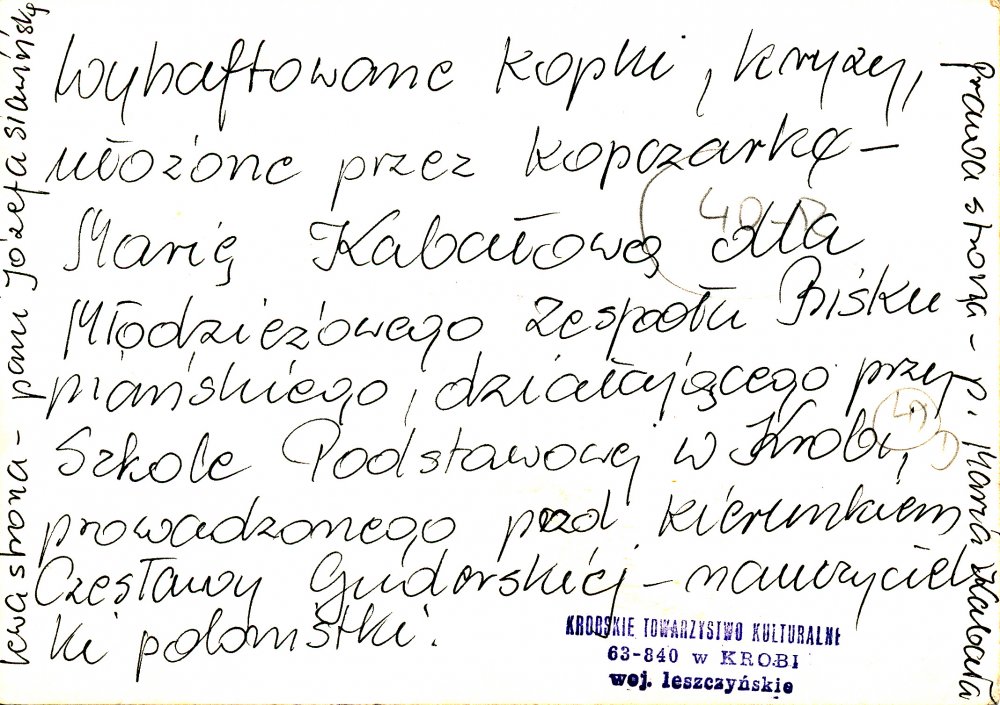 Wyhaftowane kopki, kryzy,
ułożone przez kopczarkę –
Marię Kabałową dla
Młodzieżowego Zespołu Bisku
piańskiego, działającego przy
Szkole Podstawowej w Krobi,
prowadzonego pod kierunkiem
Czesławy Gudorskiej – nauczyciel
ki polonistki.
lewa strona – pani Józefa Sławińska
prawa strona – p. Maria Kabała
KROBSKIE TOWARZYSTWO KULTURALNE
63-840 w KROBI
woj. leszczyńskie